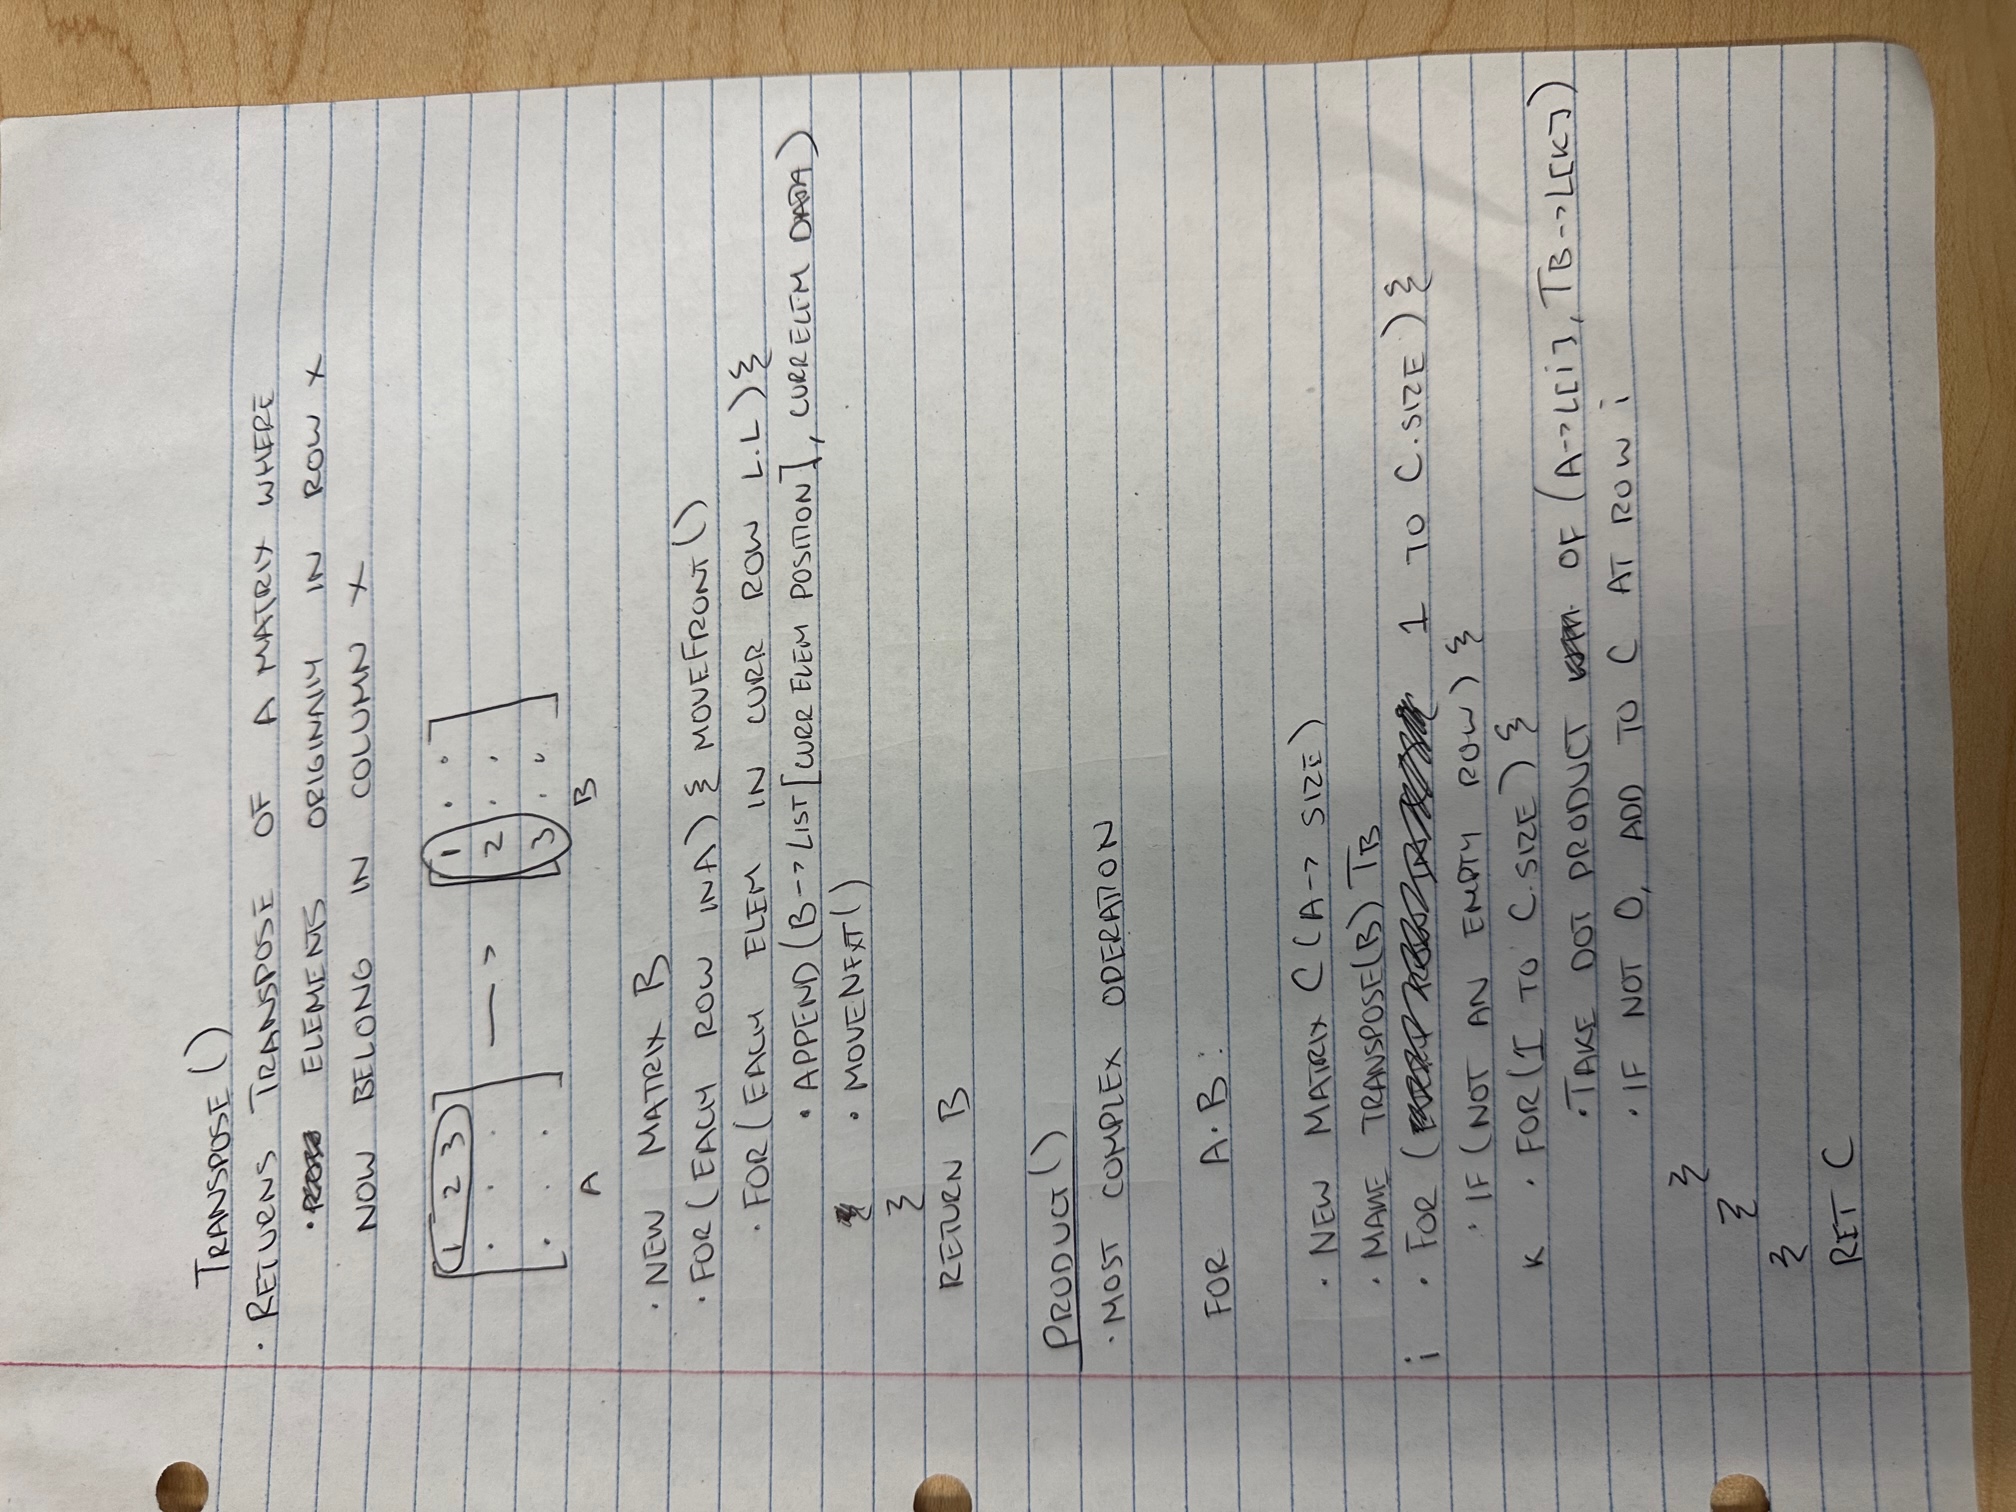 TRANSPOSE()
· RETURNS TRANSPOSE OF A MATRIX WHERE
· ELEMENTS ORIGINALLY IN ROW X
NOW BELONG IN COLUMN X
[1 2 3] —> [1 · ·]
[· · ·] [2 · ·]
[· · ·] [3 · ·]
A B
· NEW MATRIX B
· FOR (EACH ROW IN A) { MOVEFRONT()
· FOR (EACH ELEM IN CURR ROW L.L) {
· APPEND (B->LIST[CURR ELEM POSITION], CURR ELEM DATA)
· MOVENEXT()
}
RETURN B
PRODUCT()
· MOST COMPLEX OPERATION
FOR A·B:
· NEW MATRIX C (A-> SIZE)
· MAKE TRANSPOSE(B) TB
i · FOR ( 1 TO C.SIZE) {
· IF (NOT AN EMPTY ROW) {
K · FOR (1 TO C.SIZE) {
· TAKE DOT PRODUCT OF (A->L[i], TB->L[K])
· IF NOT 0, ADD TO C AT ROW i
}
}
}
RET C